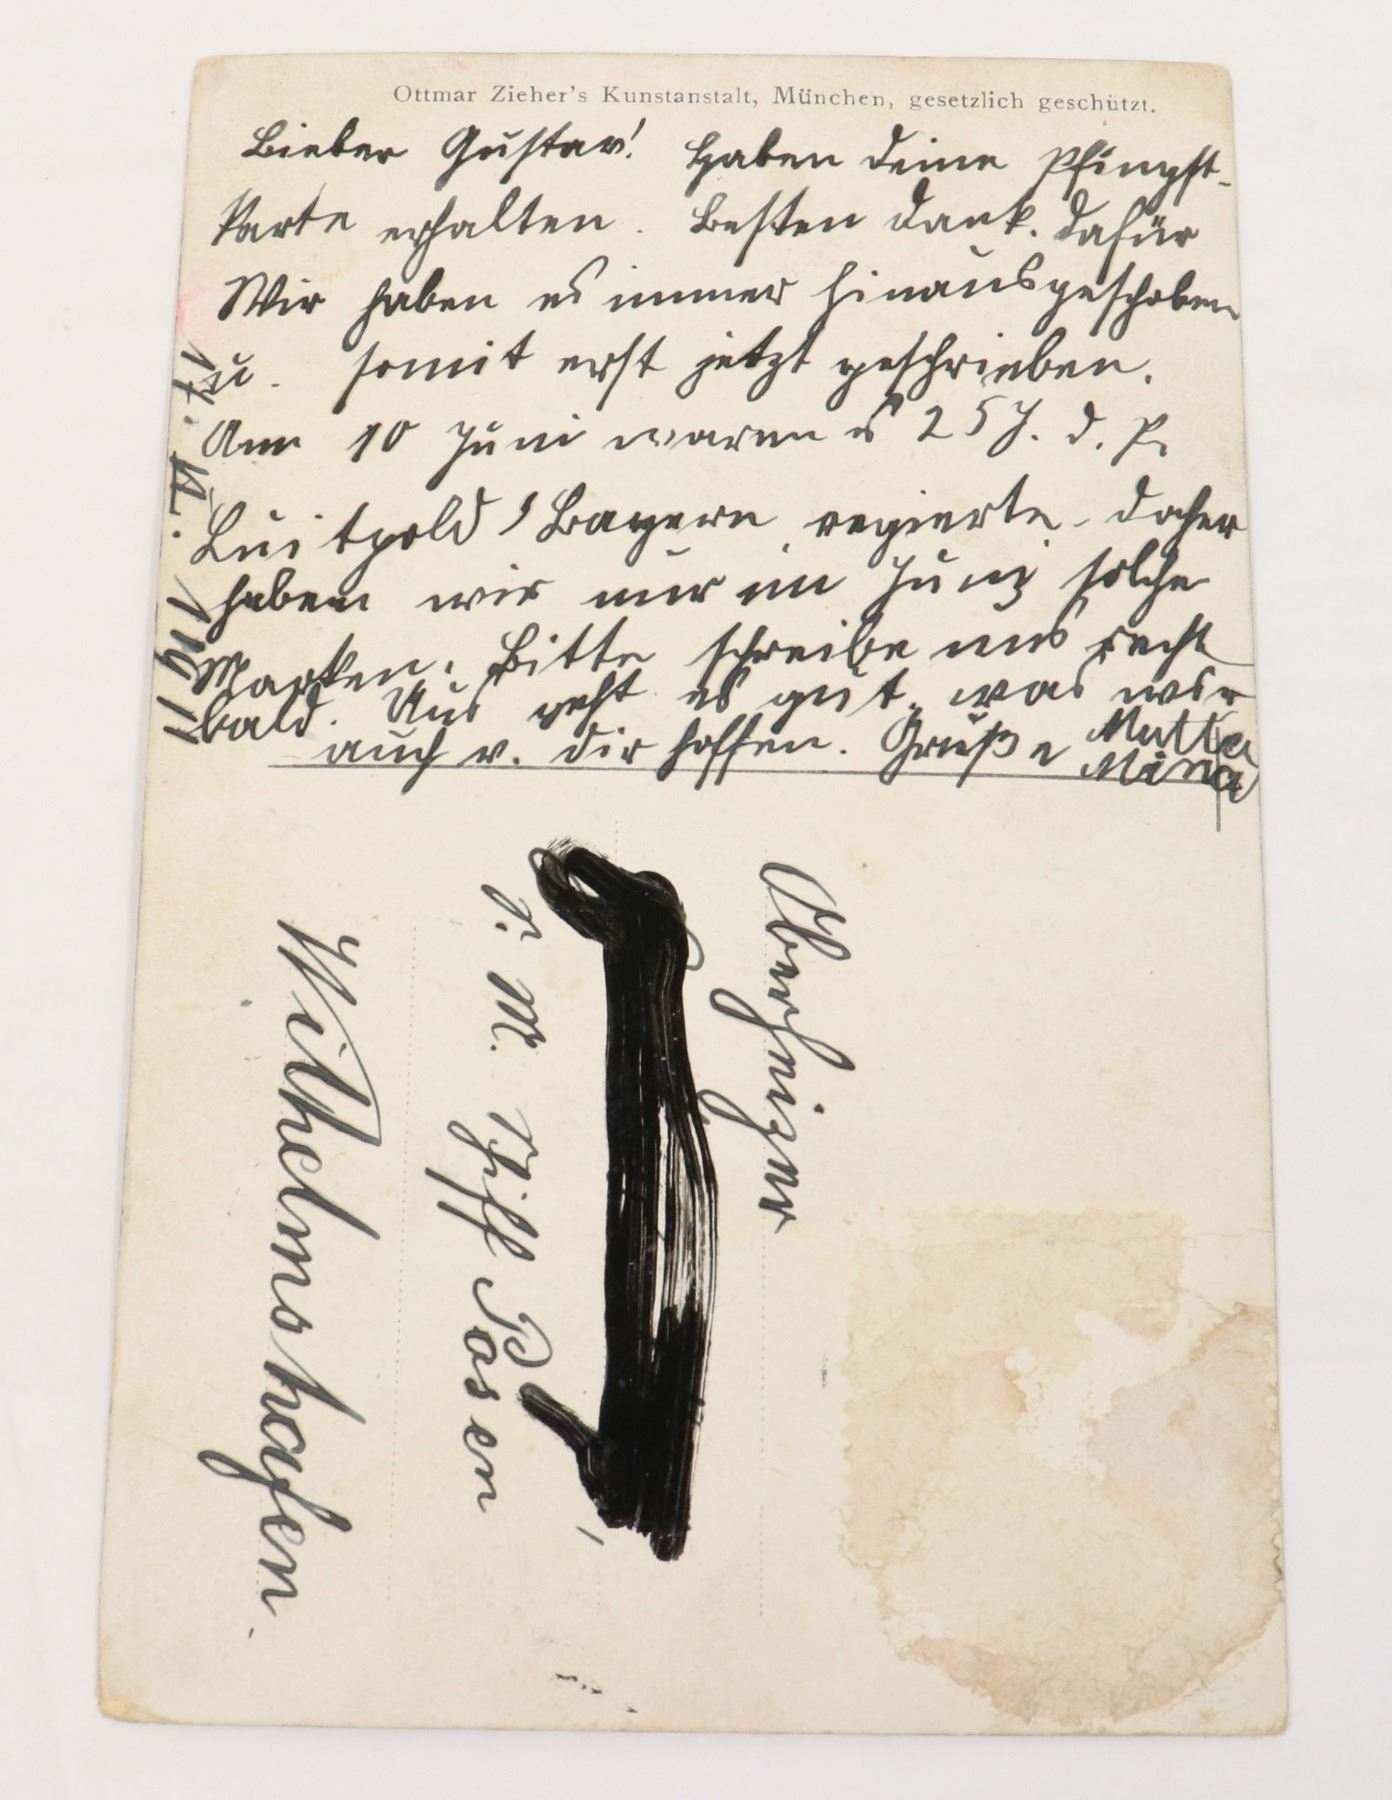 Ottmar Zieher's Kunstanstalt, München, gesetzlich geschützt.
Lieber Gustav! Haben deine Pfingst-
karte erhalten. Besten Dank. dafür
Wir haben es immer hinausgeschoben
u. somit erst jetzt geschrieben.
Am 10 Juni waren es 25 J. d. P.
Luitpold Bayern regierte. daher
haben wir nur im Juni solche
Marken. Bitte schreibe uns recht
bald. Uns geht es gut, was wir
auch v. dir hoffen. Grüße Mutter
Mina
17. 1911
Oberheizer
S. M. Schiff Posen
Wilhelmshafen.